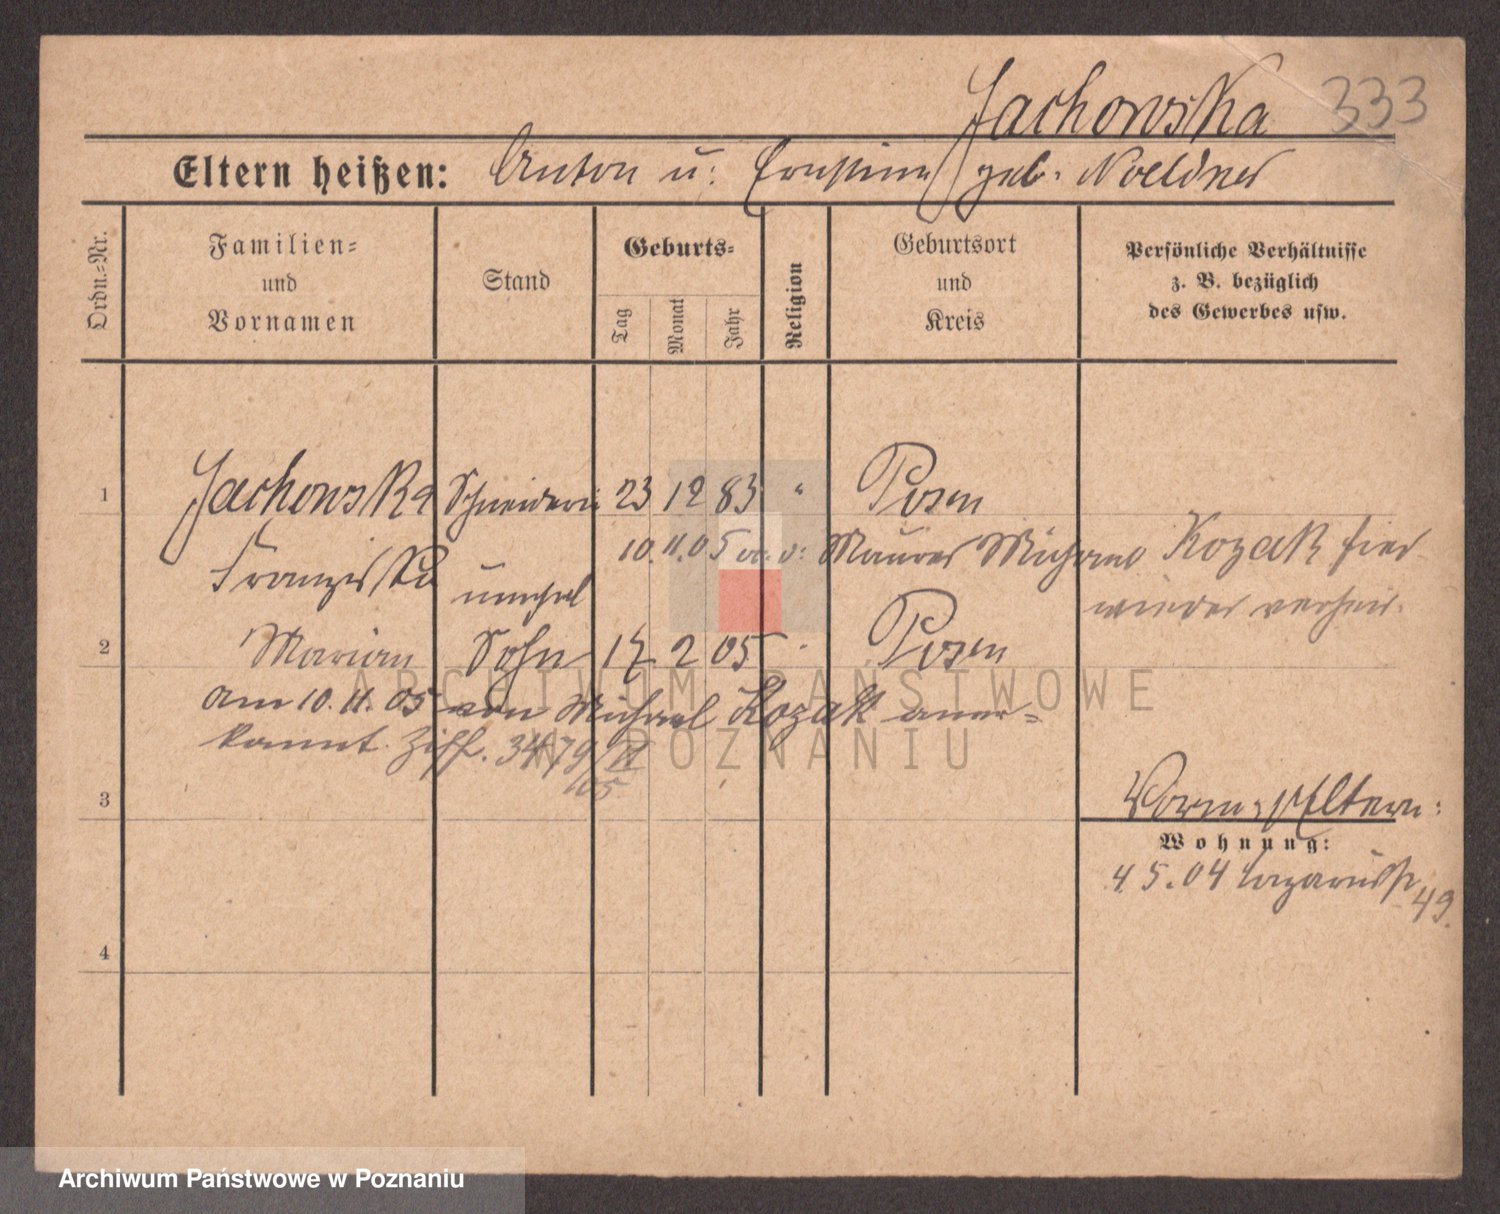 Jachowska 333
Eltern heißen: Anton u. Ernstine geb. Noeldner
Ordn.=Nr.
Familien=
und
Vornamen
Stand
Geburts=
Tag
Monat
Jahr
Religion
Geburtsort
und
Kreis
Persönliche Verhältnisse
z. B. bezüglich
des Gewerbes usw.
1 Jachowska Schneiderin 23 12 83 " Posen
10. 11. 05 v. Maurer Michael Kozak hier
Franziska unehel
wieder verheir.
2 Marian Sohn 17 2 05 " Posen
am 10. 11. 05 von Michael Kozak aner=
kannt. Ziff. 3479/II
/05
3
Vorm. s/Eltern:
Wohnung:
4. 5. 04 Lazarusstr
49.
4
ARCHIWUM PAŃSTWOWE
W POZNANIU
Archiwum Państwowe w Poznaniu